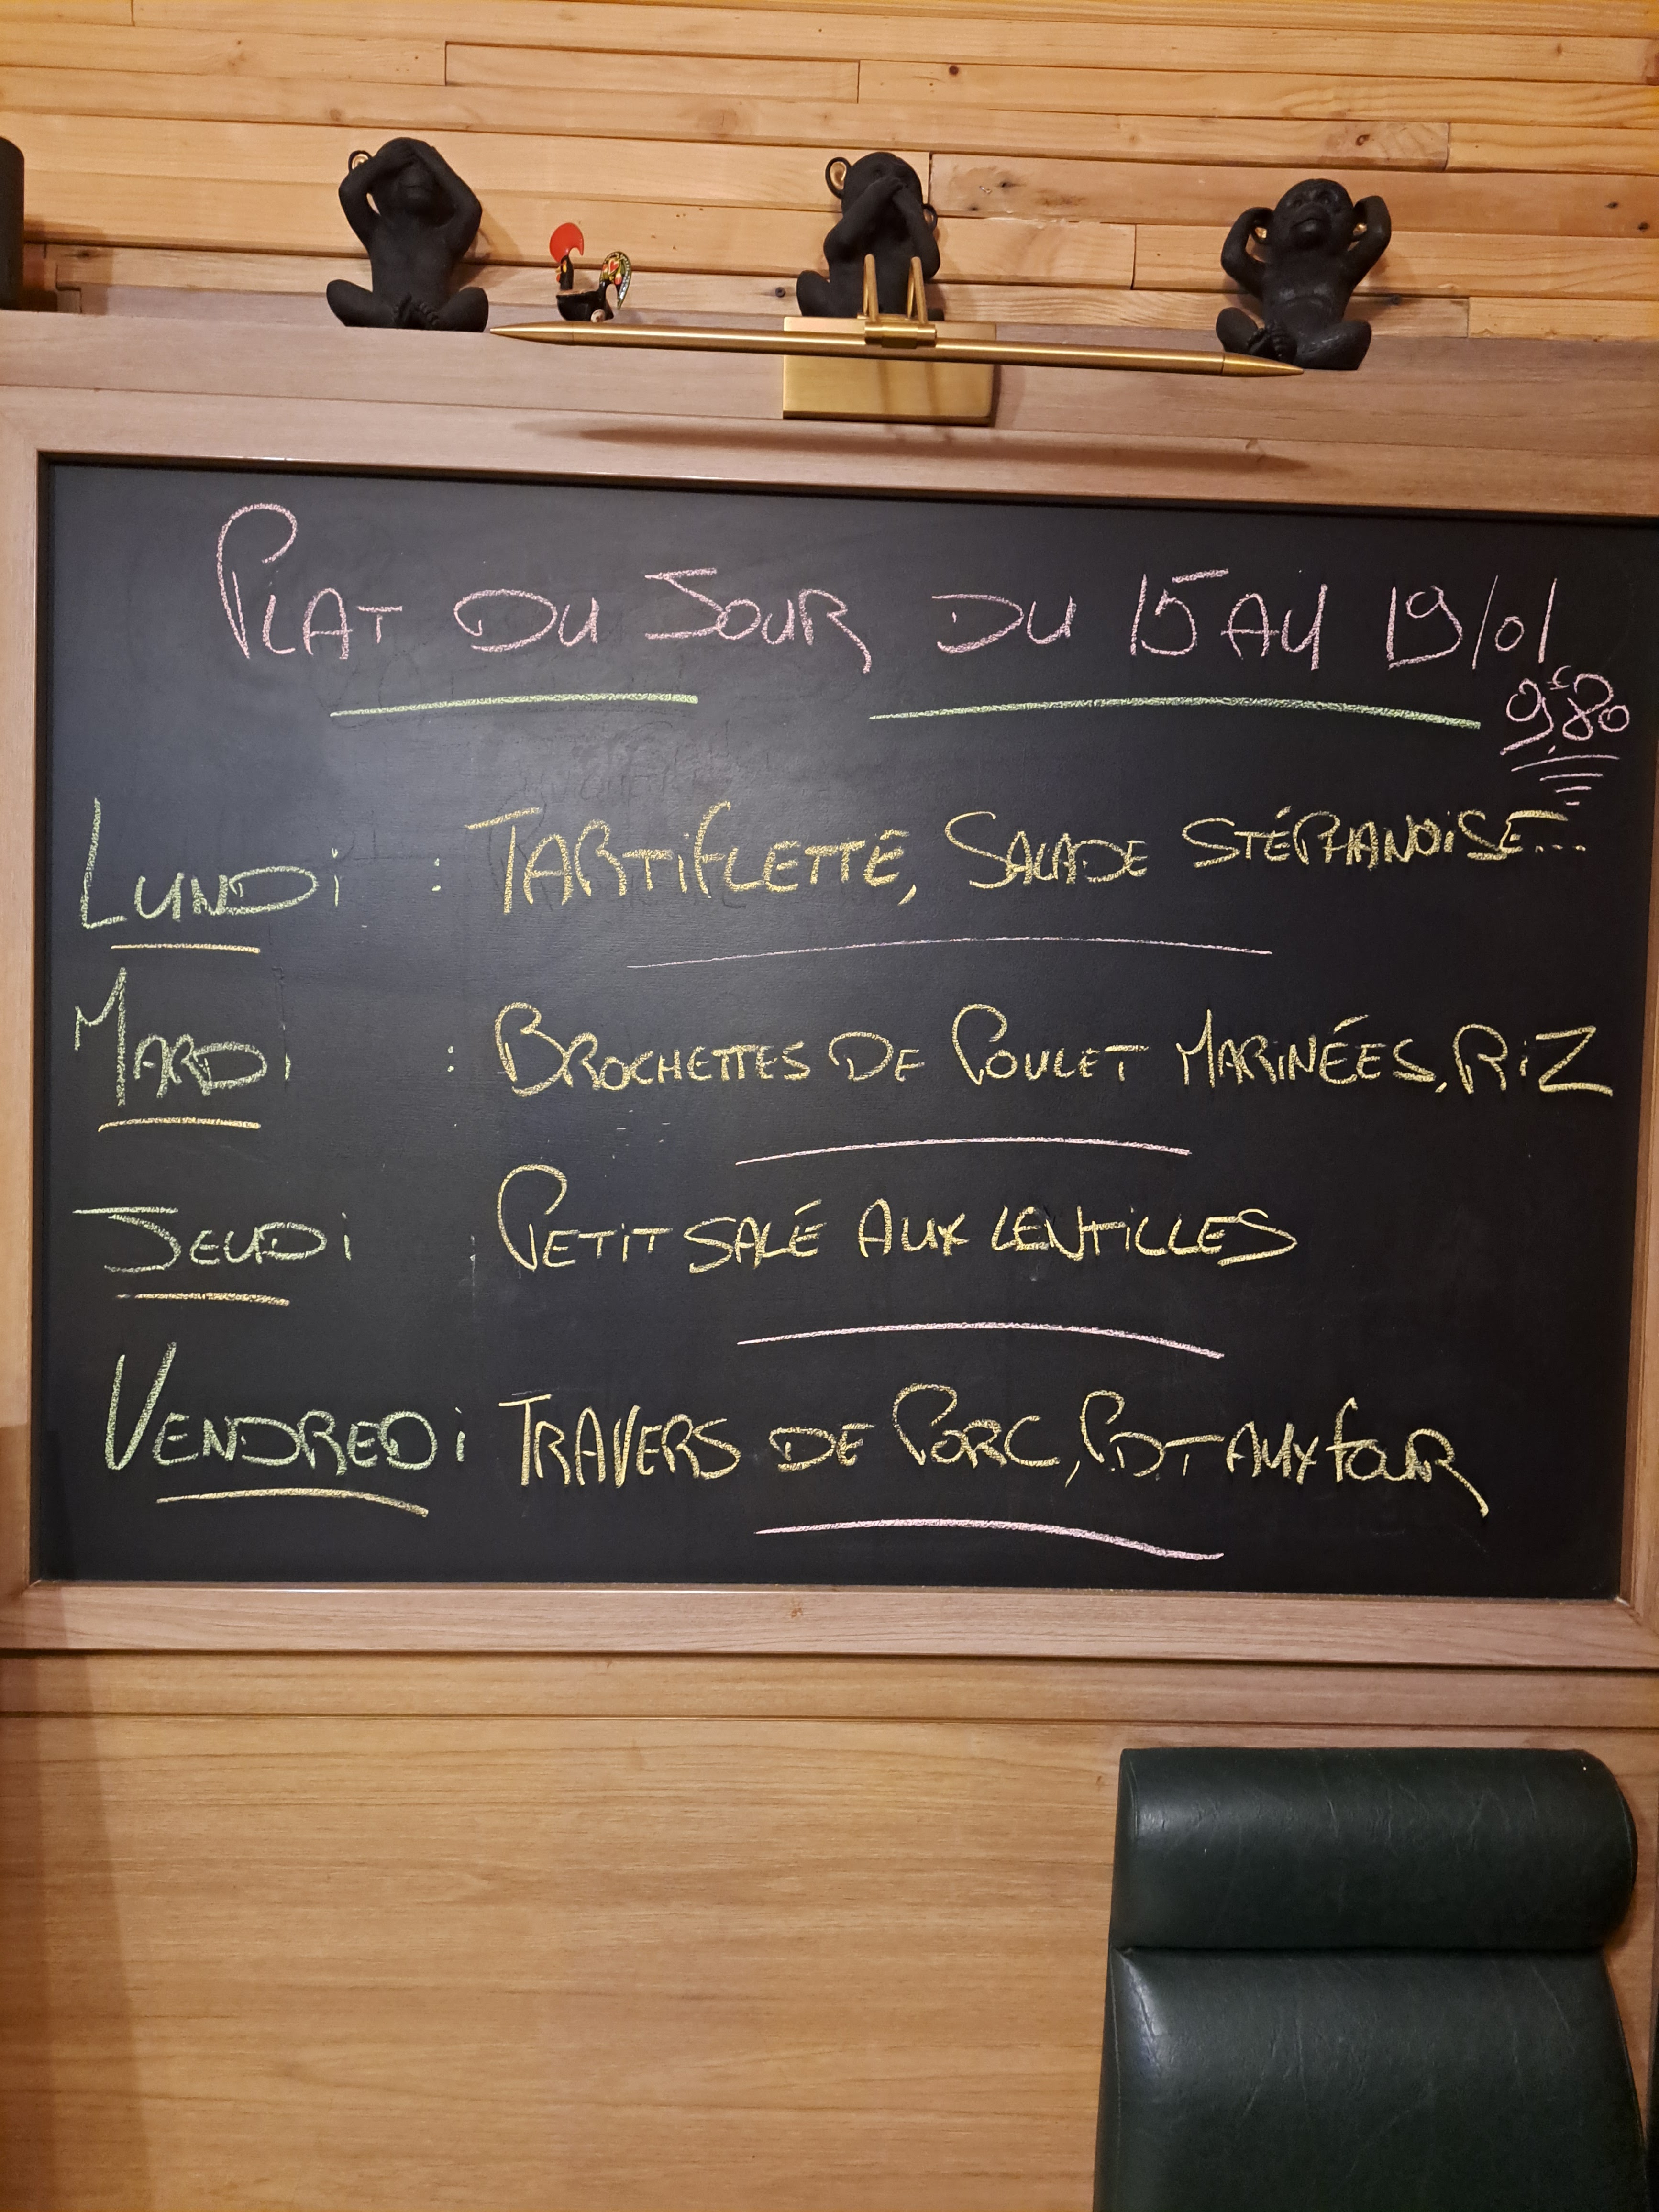 PLAT DU JOUR DU 15 AU 19/01
9€80
LUNDi : TARTiFLETTE, SALADE STÉPHANOiSE...
MARDi : BROCHETTES DE POULET MARINÉES, RiZ
JEUDi : PETiT SALÉ AUX LENTiLLES
VENDREDi TRAVERS DE PORC, PDT AUX FOUR